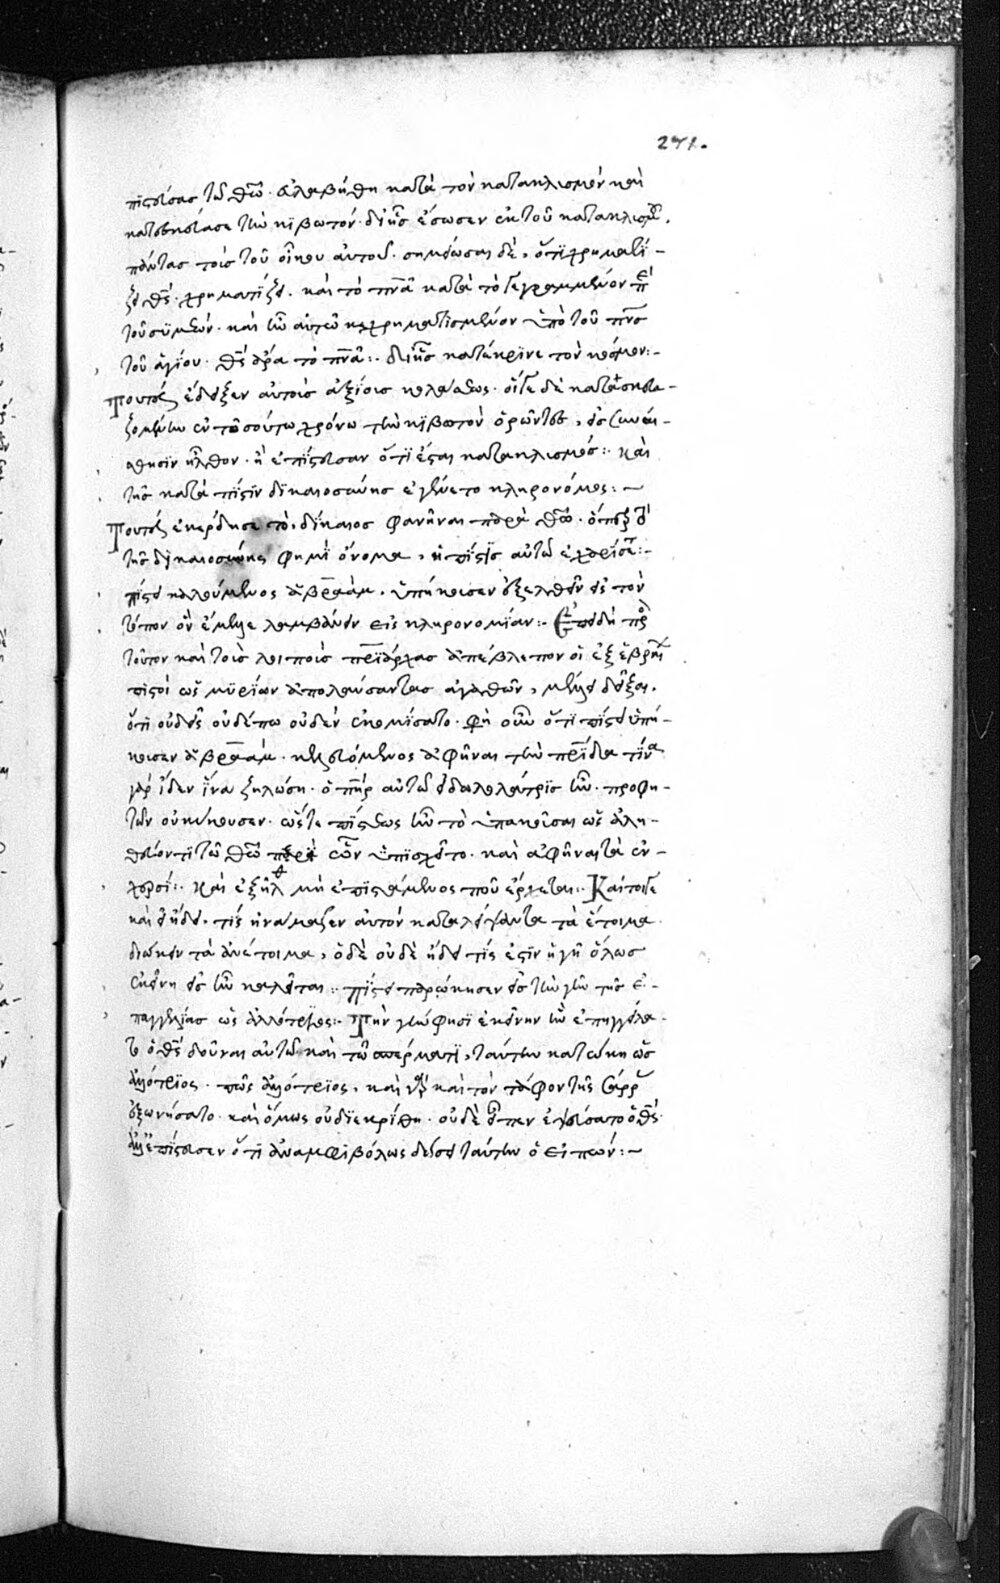 271.
πιστεύσας τῶ θεῶ. εὐλαβήθη κατὰ τὸν κατακλισμὸν καὶ
κατεσκεύασε τὴν κιβωτόν. δι' ἧς ἔσωσεν ἐκ τοῦ κατακλισμοῦ.
πάντας τοὺς τοῦ οἴκου αὐτοῦ. σημείωσαι δὲ, ὅτι χρηματί-
ζει θς. χρηματίζει. καὶ τὸ πνα κατὰ τὸ γεγραμμένον ἐπὶ
τοῦ συμεών. καὶ ἦν αὐτῶ κεχρηματισμένον ὑπὸ τοῦ πνς
τοῦ ἁγίου. θς ἄρα τὸ πνα:. δι' ἧς κατέκρινε τὸν κόσμον:-
Τουτέστιν ἔδειξεν αὐτοὺς ἀξίους κολάσεως. οἵγε δὲ κατασκευα-
ζομένην ἐν τοσούτω χρόνω τὴν κιβωτὸν ὁρῶντες, εἰς συναί-
σθησιν ἦλθον. ἢ ἐπίστευσαν ὅτι ἔσται κατακλισμός:. Καὶ
τῆς κατὰ πίστιν δικαιοσύνης ἐγένετο κληρονόμος:~
Τουτέστιν ἐκέρδησε τὸ δίκαιος φανῆναι παρὰ θεῶ. ὅπερ
τῆς δικαιοσύνης φημὶ ὄνομα, ἡ πίστις αὐτῶ ἐχαρίσατο:-
πίστει καλούμενος ἀβραάμ. ὑπήκουσεν ἐξελθεῖν εἰς τὸν
τόπον ὃν ἔμελλε λαμβάνειν εἰς κληρονομίαν:- Ἐπειδὴ πρὸς
τοῦτον καὶ τοὺς λοιποὺς πριάρχας ἀπέβλεπον οἱ ἐξ ἑβραίων
πιστοὶ ὡς μυρίων ἀπολαύσαντας ἀγαθῶν, μέλλει δεῖξαι.
ὅτι οὐδεὶς οὐδέπω οὐδὲν ἐκομίσατο. φη οὖν ὅτι πίστει ὑπή-
κουσεν ἀβραάμ. κελευόμενος ἀφῆναι τὴν πρίδα τίνα
γὰρ εἶδεν ἵνα ζηλώση. ὁ πηρ αὐτῶ εἰδωλολάτρις ἦν. προφη-
τῶν οὐκ ἤκουσεν. ὥστε πίστεως ἦν τὸ ὑπακοῦσαι ὡς ἀλη-
θεύοντι τῶ θεῶ περὶ ὧν ὑπισχνεῖτο. καὶ ἀφῆναι τὰ ἐν
χερσί:. Καὶ ἐξῆλθε μὴ ἐπιστάμενος ποῦ ἔρχεται:. Καίτοιγε
καὶ εἰ ἤδει. τίς ἠνάγκαζεν αὐτὸν καταλείψαντα τὰ ἕτοιμα.
διώκειν τὰ ἀνέτοιμα, ὁ δὲ οὐδὲ ἤδει τίς ἐστιν ἡ γῆ ὅλως
ἐκείνη εἰς ἣν καλεῖται:. πίστει παρώκησεν εἰς τὴν γῆν τῆς ἐ-
παγγελίας ὡς ἀλλότριος:- Τὴν γῆν φησὶ ἐκείνην ἣν ἐπηγγείλα-
το ὁ θς δοῦναι αὐτῶ καὶ τῶ σπέρματι, ταύτην κατώκη ὡς
ἀλλότριος. πῶς ἀλλότριος. καὶ καὶ τὸν τάφον τῆς σάρρας
ἐξωνήσατο. καὶ ὅμως οὐ διεκρίθη. οὐδὲ εἶπεν ἐψεύσατο ὁ θς.
ἀλλ' ἐπίστευσεν ὅτι ἀναμφιβόλως δώσει ταύτην ὁ εἰπών:~